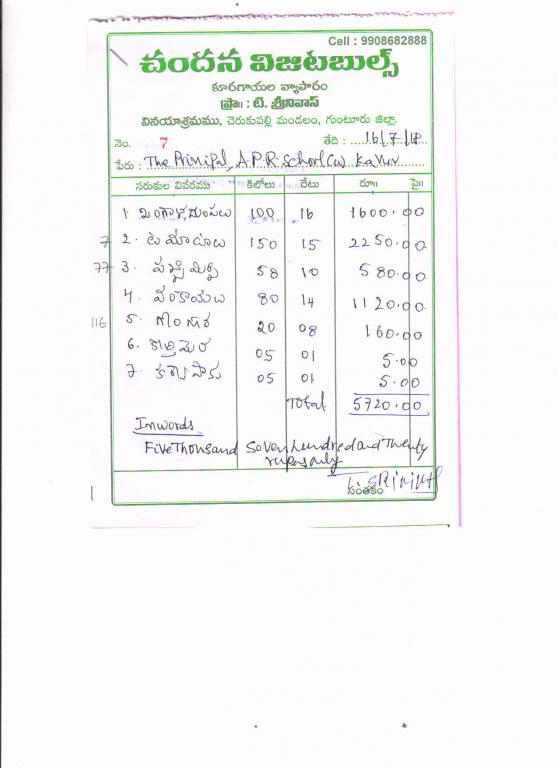 Cell : 9908682888
చందన విజిటబుల్స్
కూరగాయల వ్యాపారం
ప్రొ॥ : టి. శ్రీనివాస్
వినయాశ్రమము, చెరుకుపల్లి మండలం, గుంటూరు జిల్లా.
నెం. 7 తేది : 16/7/18
పేరు : The Prinipal, A.P.R. School
సరుకుల వివరము కిలోలు రేటు రూ॥ పై॥
1 బంగాళదుంపలు 100 16 1600.00
7 2. టమోటాలు 150 15 2250.00
77 3. పచ్చిమిర్చి 58 10 580.00
4. వంకాయలు 80 14 1120.00
116 5. గోంగూర 20 08 160.00
6. కొత్తిమెర 05 01 5.00
7. కర్వేపాకు 05 01 5.00
Total 5720.00
Inwords
Five Thousand Seven hundred and Twenty
rupes only
సంతకం